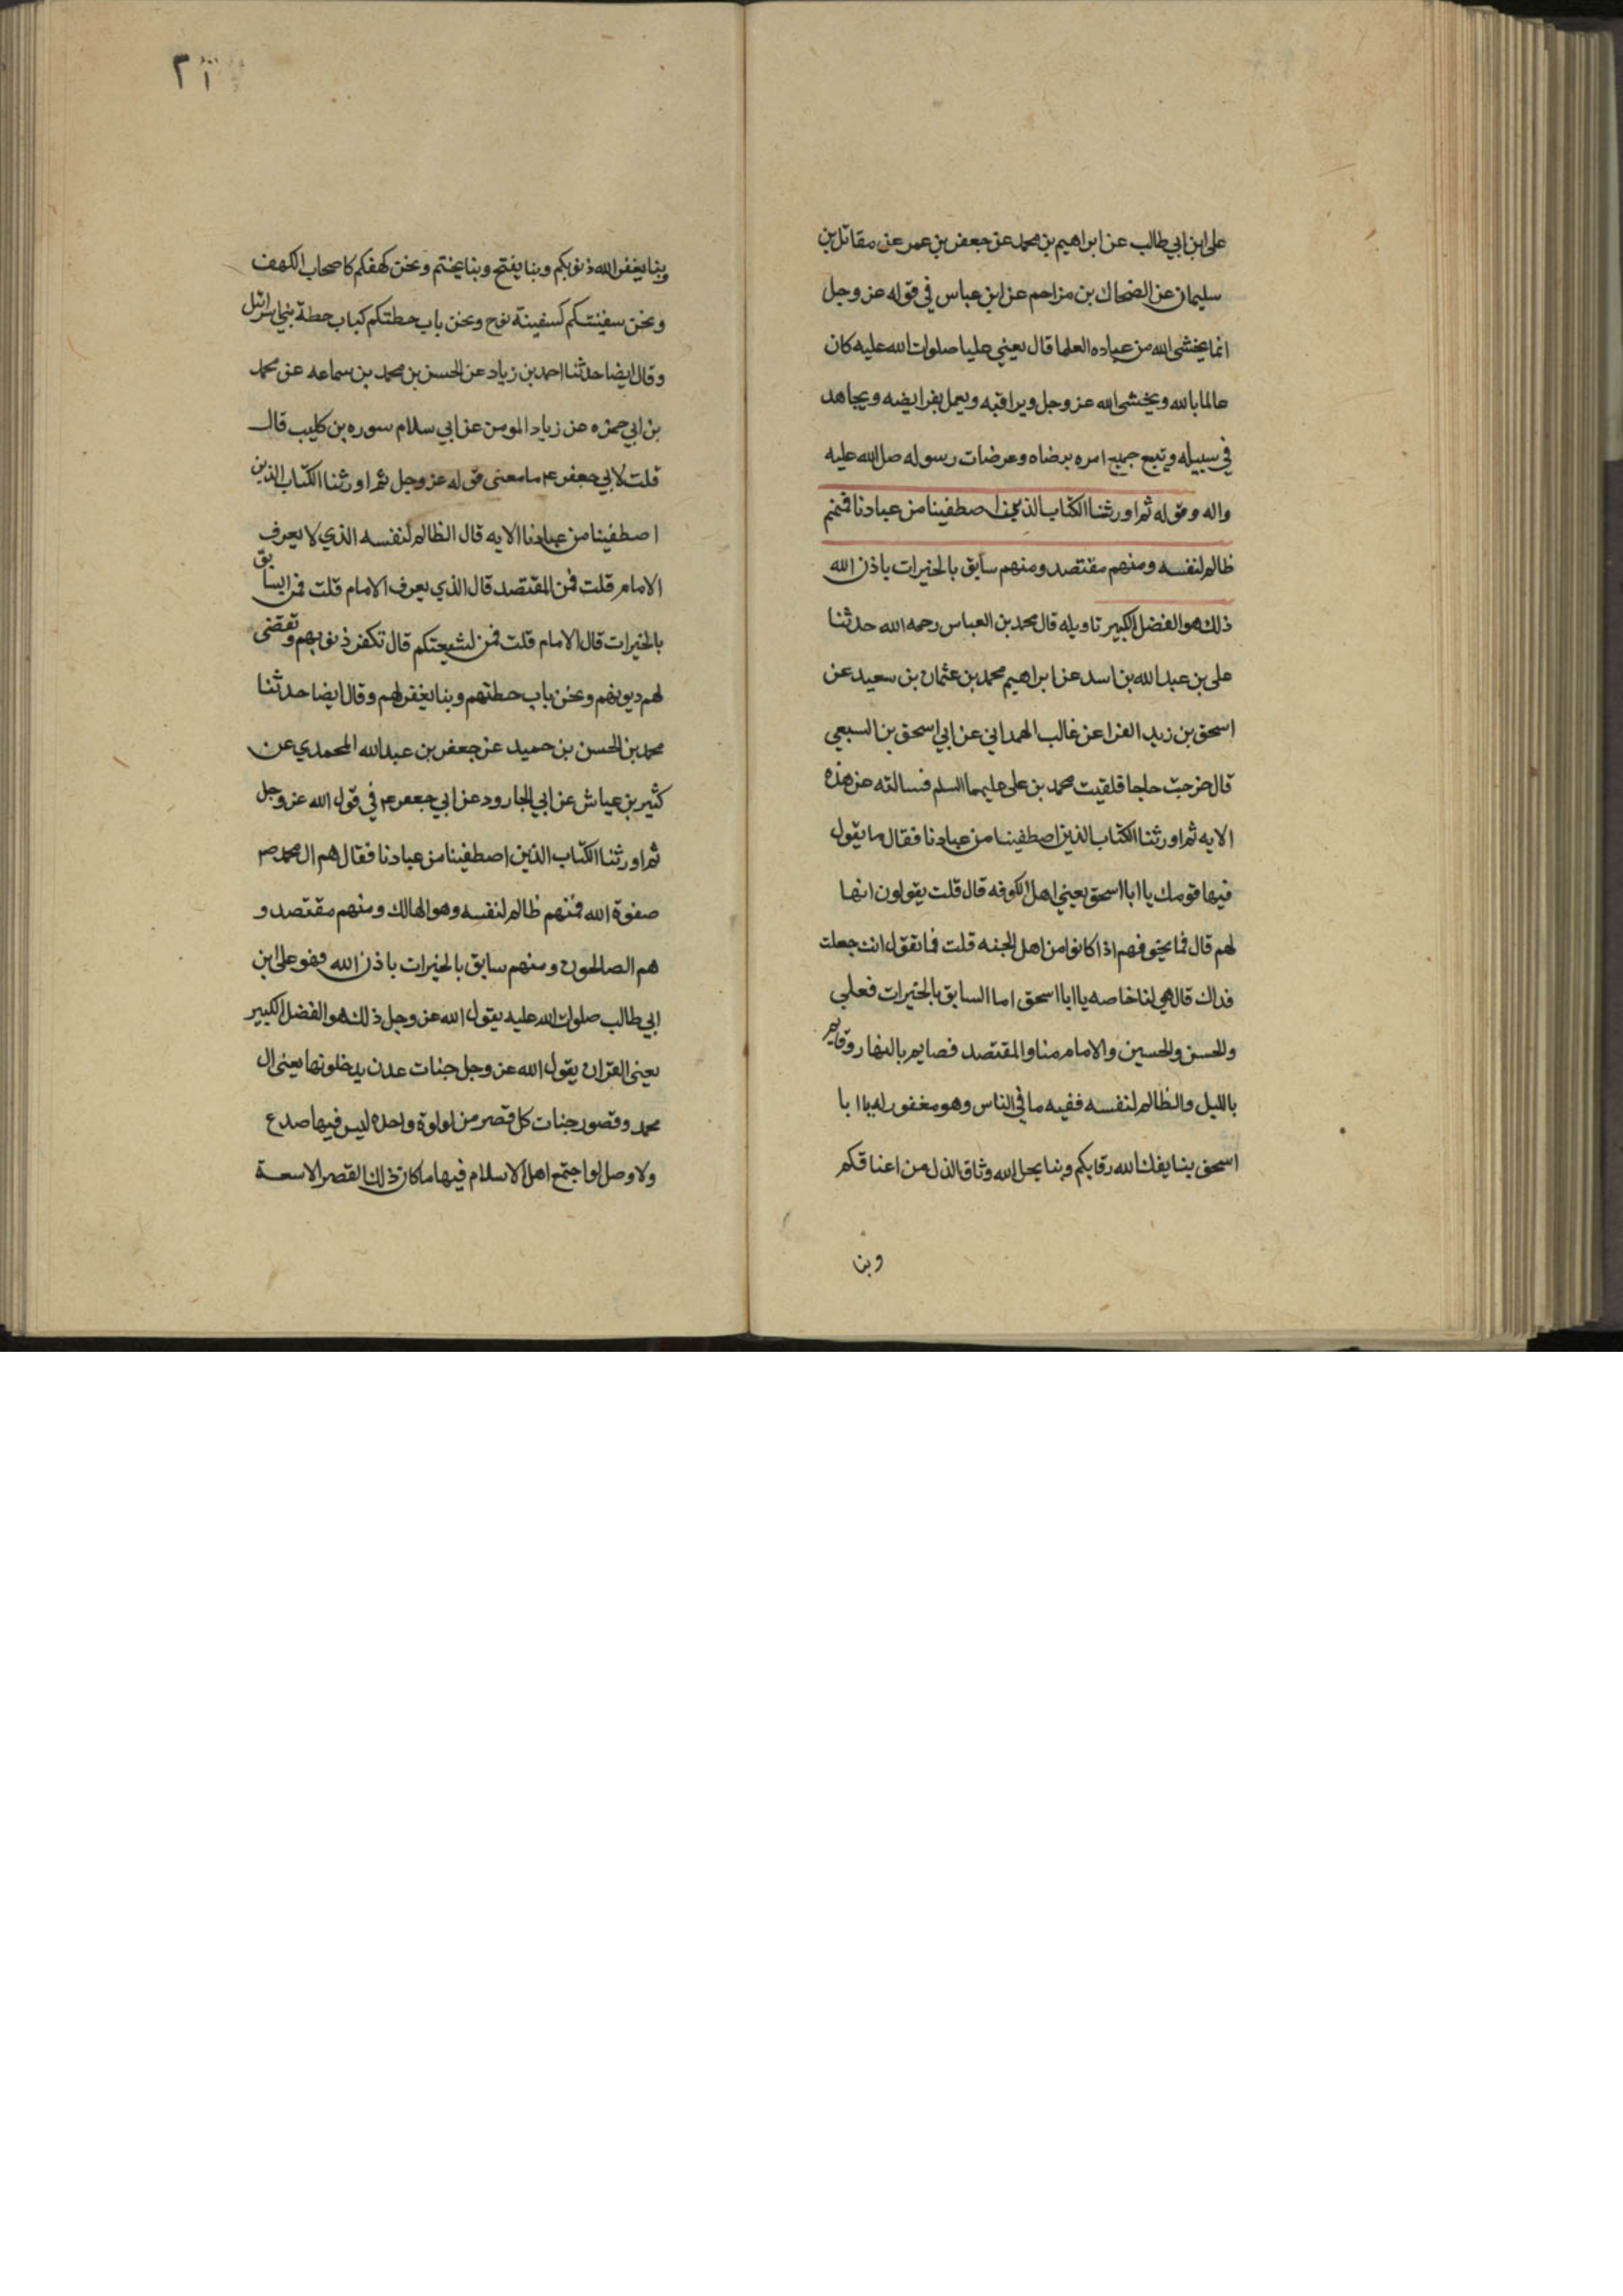 على ابن ابي طالب عن ابراهيم بن محمد عن جعفر بن عمر عن مقاتل بن
سليمان عن الضحاك بن مزاحم عن ابن عباس في قوله عز وجل
انما يخشى الله من عباده العلما قال يعني عليا صلوات الله عليه كان
عالما بالله ويخشى الله عز وجل ويراقبه ويعمل بفرايضه ويجاهد
في سبيله ويتبع جميع امره برضاه ومرضات رسوله صل الله عليه
واله وقوله ثم اورثنا الكتاب الذين اصطفينا من عبادنا فمنهم
ظالم لنفسه ومنهم مقتصد ومنهم سابق بالخيرات باذن الله
ذلك هو الفضل الكبير تاويله قال محمد بن العباس رحمه الله حدثنا
على بن عبد الله بن اسد عن ابراهيم محمد بن عثمان بن سعيد عن
اسحق بن زيد الفرا عن غالب الهمداني عن ابي اسحق بن السبعي
قال خرجت حاجا فلقيت محمد بن على عليهما السلم فسالته عن هذه
الايه ثم اورثنا الكتاب الذين اصطفينا من عبادنا فقال ما يقول
فيها قومك يا ابا اسحق يعني اهل الكوفه قال قلت يقولون انها
لهم قال فما يخوفهم اذا كانوا من اهل الجنه قلت فما تقول انت جعلت
فداك قال هي لنا خاصه يا ابا اسحق اما السابق بالخيرات فعلي
والحسن والحسين والامام منا والمقتصد فصايم بالنهار وقايم
بالليل والظالم لنفسه ففيه ما في الناس وهو مغفور له يا ابا
اسحق بنا يفك الله رقابكم وبنا يحل الله وثاق الذل من اعناقكم
وبنا
٢١
وبنا يغفر الله ذنوبكم وبنا يفتح وبنا يختم ونحن كهفكم كاصحاب الكهف
ونحن سفينتكم كسفينة نوح ونحن باب حطتكم كباب حطة بني اسرائيل
وقال ايضا حدثنا احمد بن زياد عن الحسن بن محمد بن سماعه عن محمد
بن ابي حمزه عن زياد المومن عن ابي سلام سوره بن كليب قال
قلت لابي جعفر ع ما معنى قوله عز وجل ثم اورثنا الكتاب الذين
اصطفينا من عبادنا الايه قال الظالم لنفسه الذي لا يعرف
الامام قلت فمن المقتصد قال الذي يعرف الامام قلت فمن السابق
بالخيرات قال الامام قلت فمن لشيعتكم قال تكفر ذنوبهم وتقضى
لهم ديونهم ونحن باب حطتهم وبنا يغفر لهم وقال ايضا حدثنا
محمد بن الحسن بن حميد عن جعفر بن عبد الله المحمدي عن
كثير بن عياش عن ابي الجارود عن ابي جعفر ع في قول الله عز وجل
ثم اورثنا الكتاب الذين اصطفينا من عبادنا فقال هم ال محمد ص
صفوة الله فمنهم ظالم لنفسه وهو الهالك ومنهم مقتصد و
هم الصالحون ومنهم سابق بالخيرات باذن الله فهو على ابن
ابي طالب صلوات الله عليه يقول الله عز وجل ذلك هو الفضل الكبير
يعنى القران يقول الله عز وجل جنات عدن يدخلونها يعنى ال
محمد وقصور جنات كل قصر من لولوة واحده ليس فيها صدع
ولا وصل لو اجتمع اهل الاسلام فيها ما كان ذلك القصر الا سعة